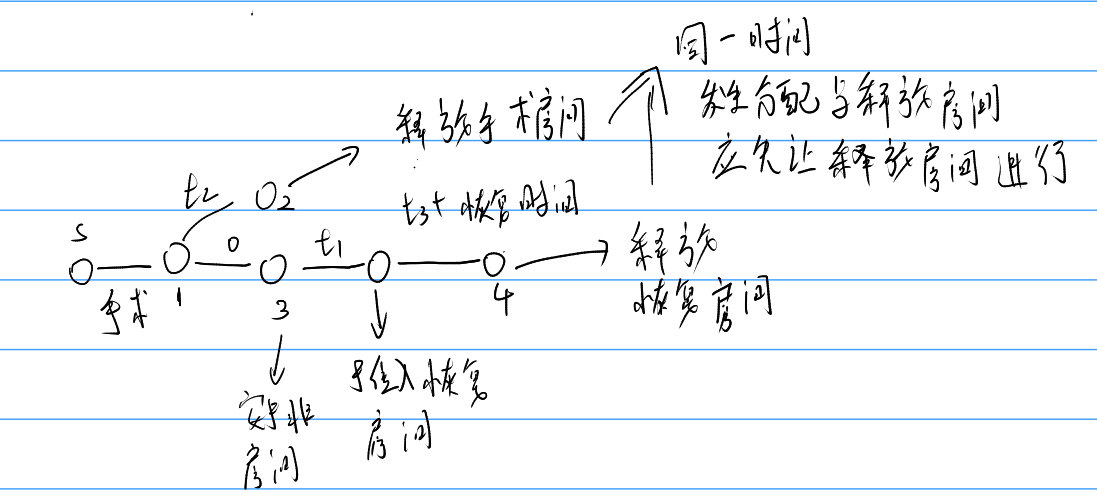 同一时间
发生分配与释放房间
应先让释放房间进行
释放手术房间
t2
2
t3+恢复时间
S
0
t1
释放
恢复房间
手术
1
3
4
安排
房间
推入恢复
房间